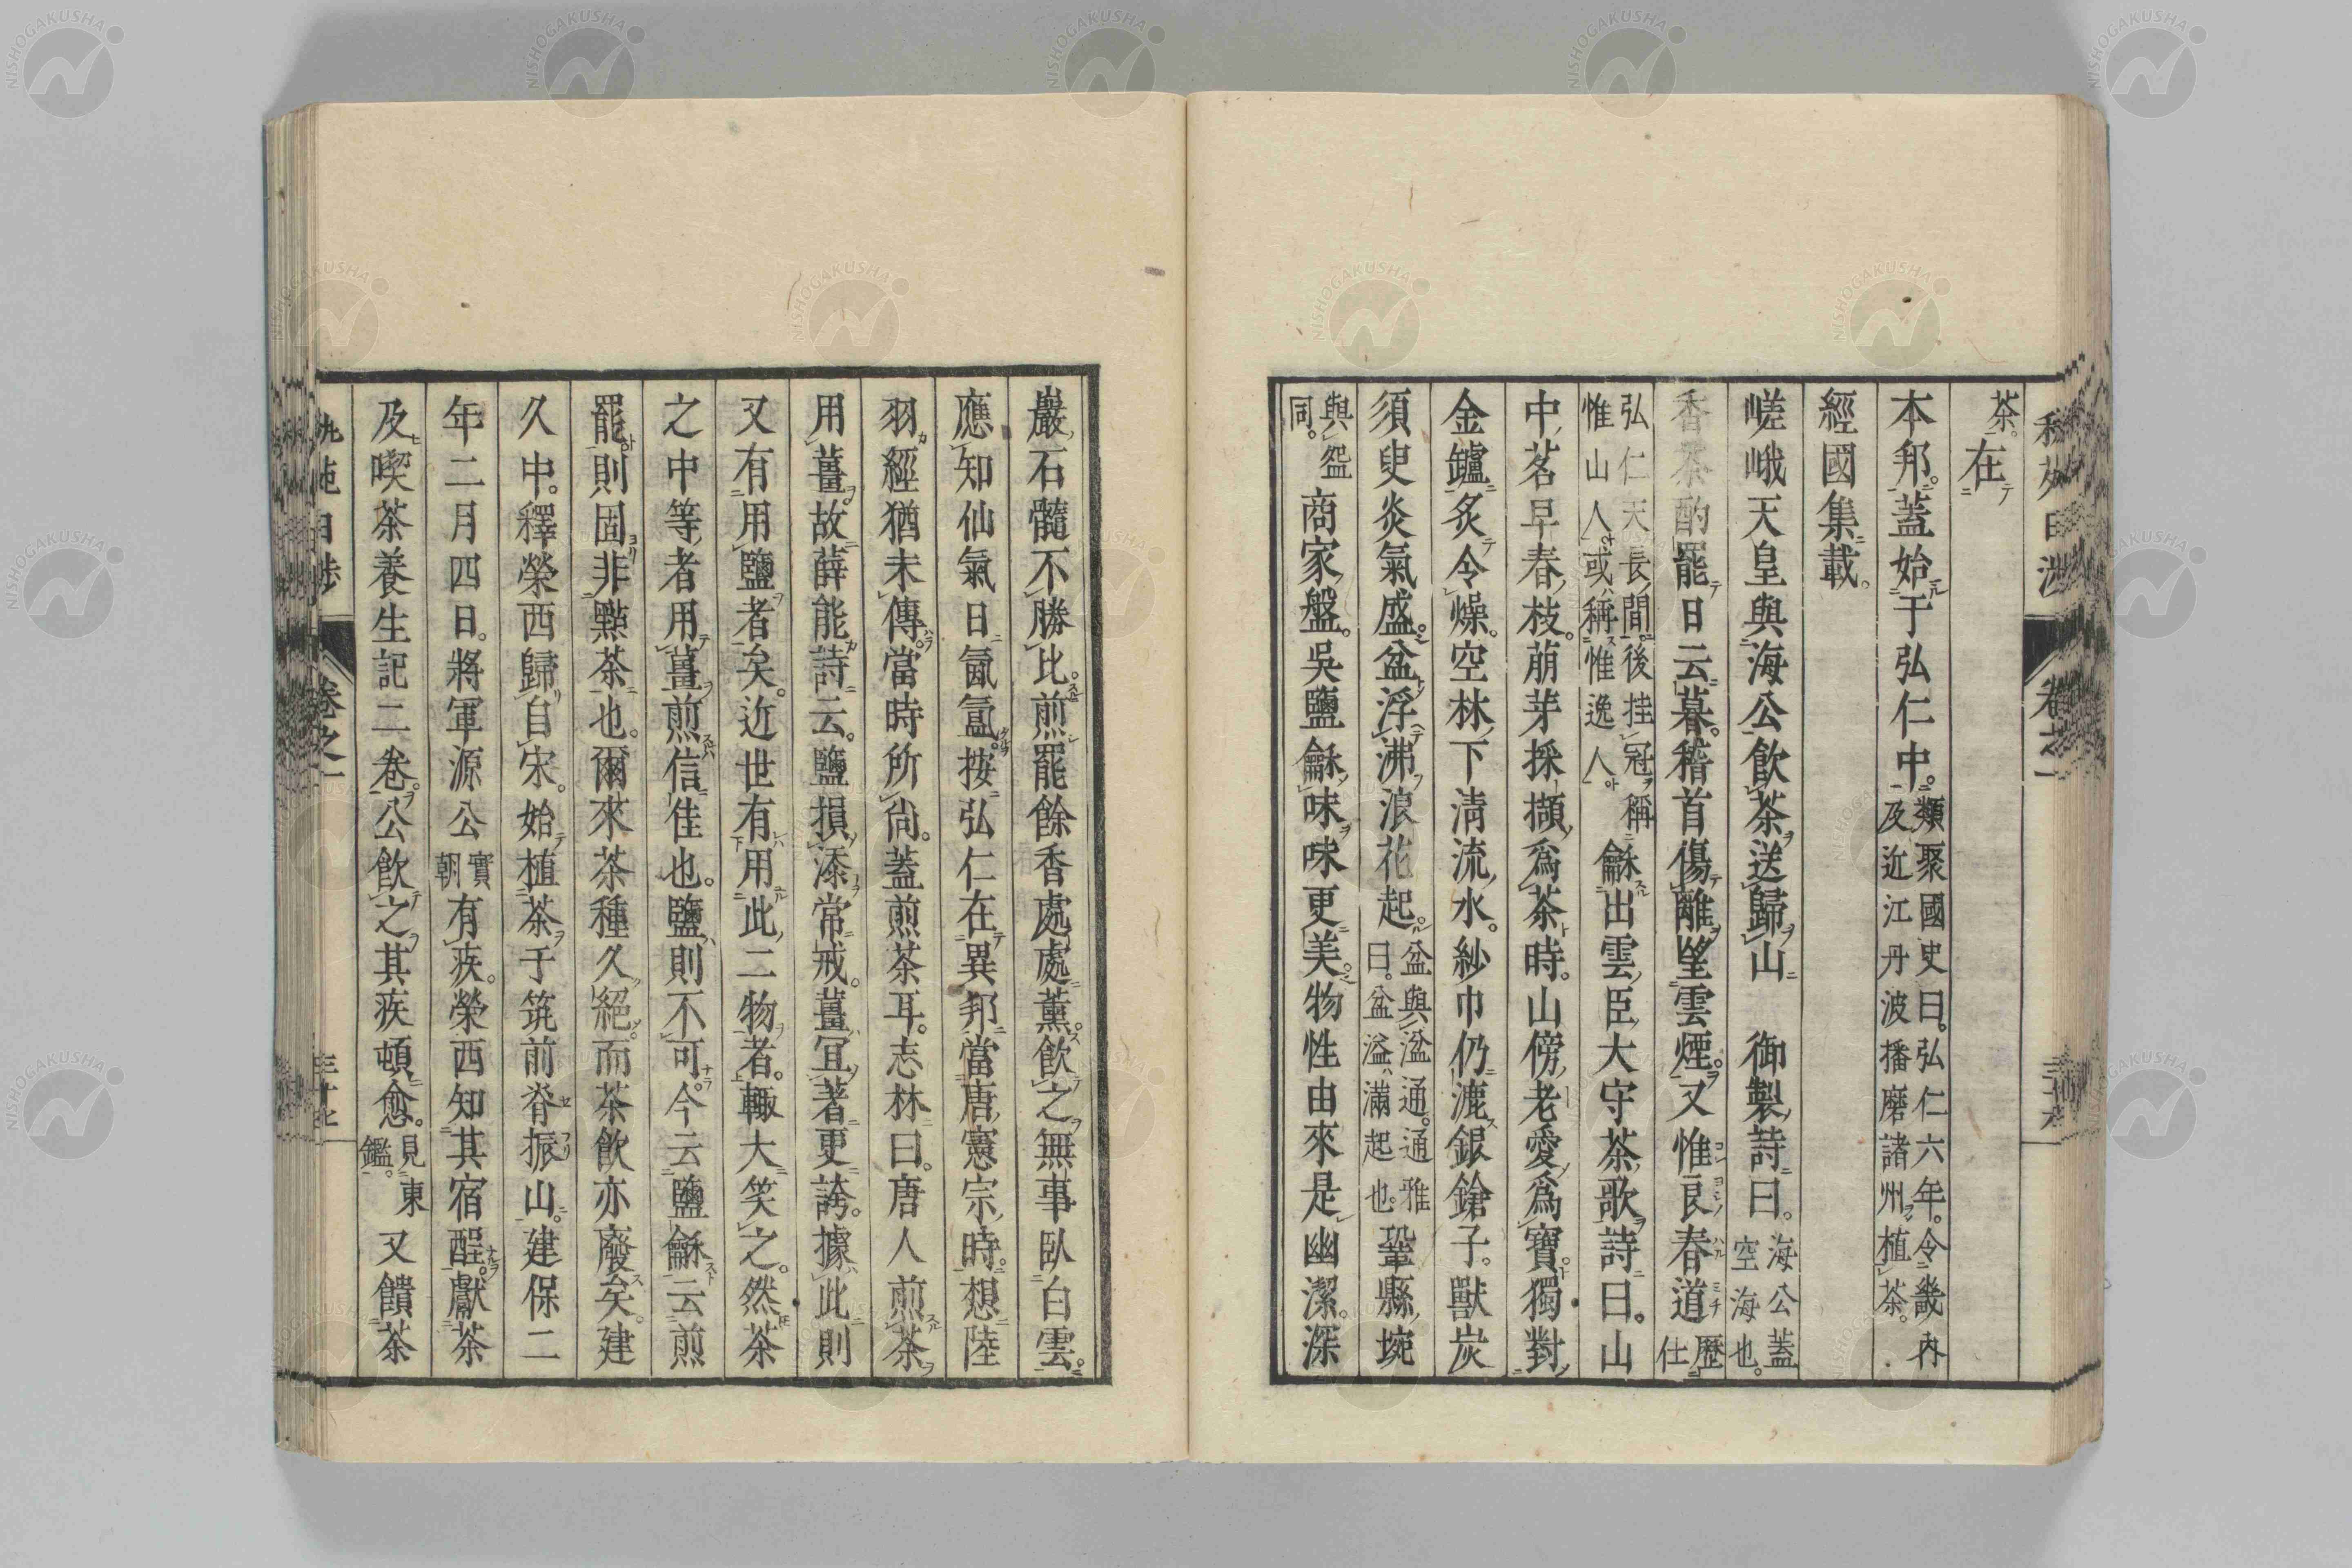 茶。在
本邦。蓋始于弘仁中。類聚國史曰。弘仁六年。令畿內及近江丹波播磨諸州植茶。
經國集載。
嵯峨天皇與海公飮茶送歸山 御製詩曰。海公蓋空海也。
香茶酌罷日云暮。稽首傷離望雲煙。又惟良春道歷仕
弘仁天長間。後挂冠稱惟山人。或稱惟逸人。龢出雲臣大守茶歌詩曰。山
中茗早春枝。萠芽採擷爲茶時。山傍老愛爲寶。獨對
金鑪炙令燥。空林下淸流水。紗巾仍漉銀鎗子。獸炭
須臾炎氣盛。盆浮沸浪花起。盆與湓通。通雅曰。盆溢滿起也。鞏縣垸
與盌同。商家盤。吳鹽龢味味更美。物性由來是幽潔。深
巖石髓不勝比。煎罷餘香處處薰。飮之無事臥白雲。
應知仙氣日氤氳。按弘仁在異邦當唐憲宗時。想陸
羽經猶未傳。當時所尙。蓋煎茶耳。志林曰。唐人煎茶
用薑。故薛能詩云。鹽損添常戒。薑宜著更誇。據此則
又有用鹽者矣。近世有用此二物者。輙大笑之。然茶
之中等者用薑煎信佳也。鹽則不可。今云鹽龢云煎
罷。則固非點茶也。爾來茶種久絕。而茶飮亦廢矣。建
久中。釋榮西歸自宋。始植茶于筑前脊振山。建保二
年二月四日。將軍源公實朝有疾。榮西知其宿酲。獻茶
及喫茶養生記二卷。公飮之其疾頓愈。見東鑑。又饋茶
卷之一
NISHOGAKUSHA